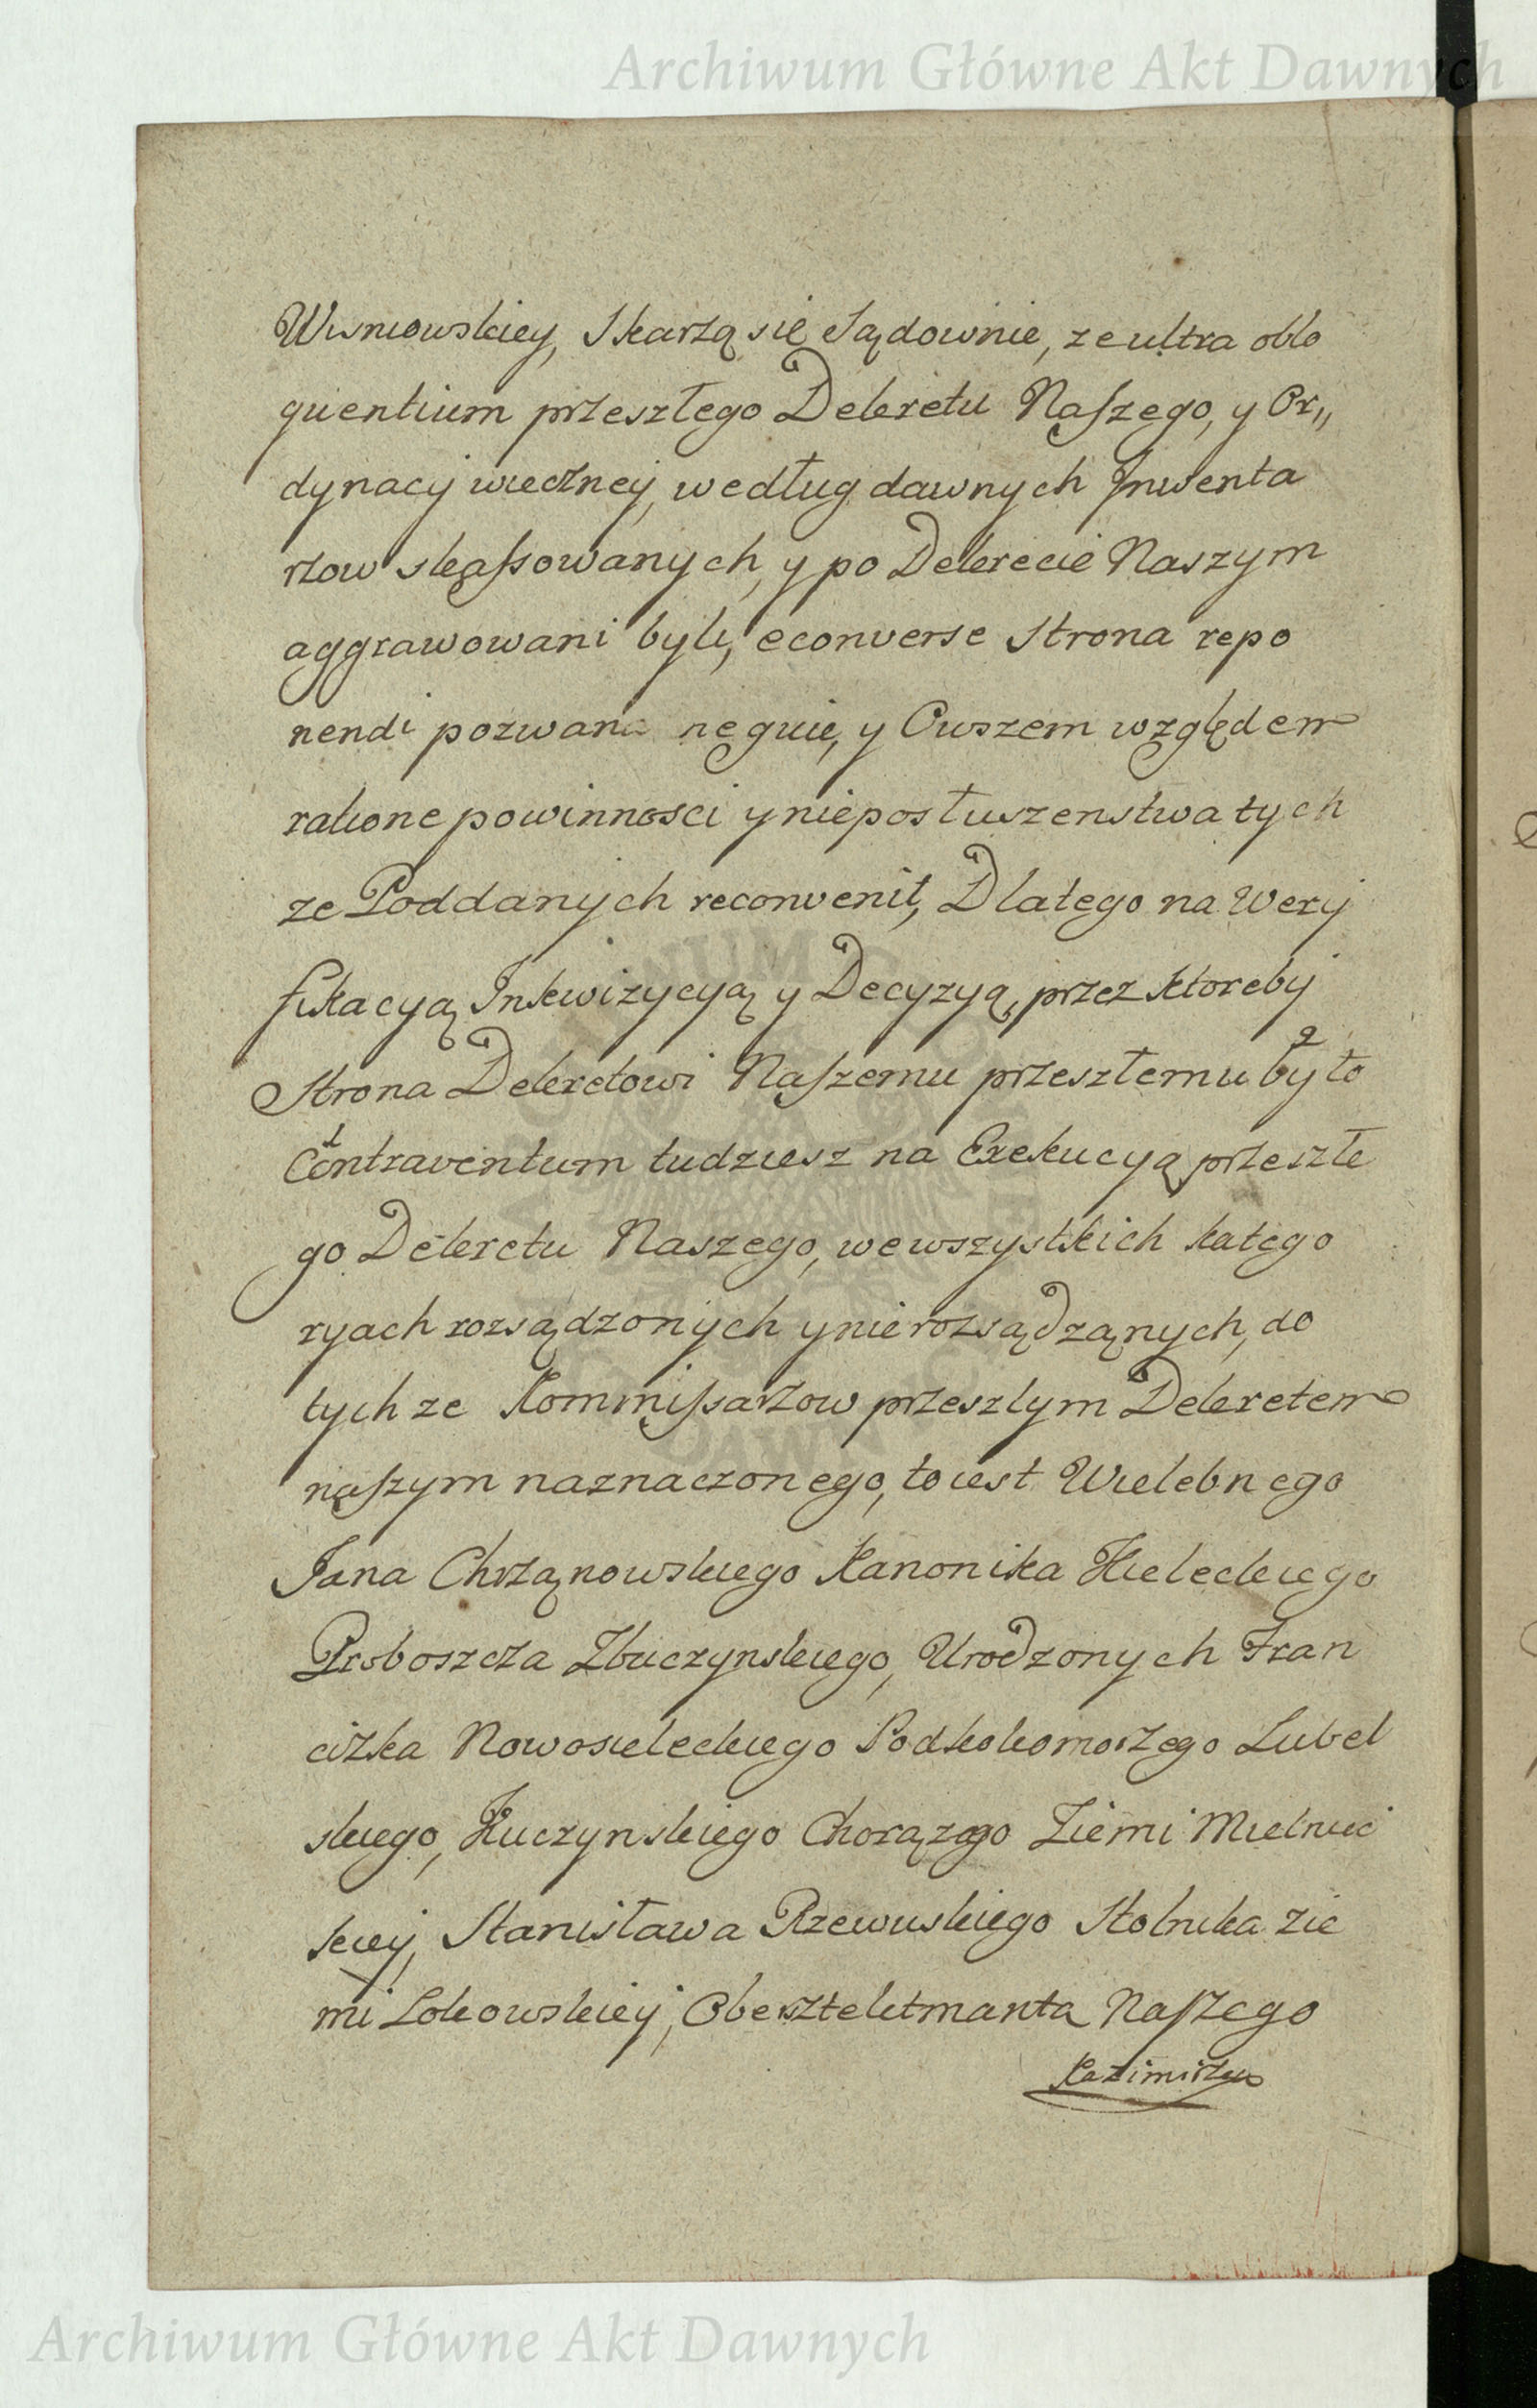 Archiwum Główne Akt Dawnych
Wisniowskiey, Skarżą się Sądownie, ze ultra oblo
quentium przeszłego Dekretu Naszego, y Or„
dynacyi wieczney, według dawnych Inwenta
rzow skassowanych, y po Dekrecie Naszym
aggrawowani byli, econverse Strona repo
nendi pozwana neguie, y Owszem względem
ratione powinnosci y nieposłuszenstwa tych
ze Poddanych reconvenit, Dlatego na Wery
fikacyą Inkwizycyą y Decyzyą, przez ktoreby
Strona Dekretowi Naszemu przeszłemu 2 było
1 Contraventum tudziesz na Exekucyą przeszłe
go Dekretu Naszego, we wszystkich katego
ryach rozsądzonych y nierozsądzanych, do
tych ze Kommissarzow przeszlym Dekretem
naszym naznaczonego, to iest Wielebnego
Jana Chrzanowskiego Kanonika Kieleckiego
Proboszcza Zbuczynskiego, Urodzonych Fran
ciszka Nowosieleckiego Podkokomorzego Lubel
skiego, Kuczynskiego Chorązego Ziemi Mielnic
kiey, Stanisława Rzewuskiego Stolnika Zie
mi Łokowskiey, Oberszteletmanta Naszego
Kazimirza
Archiwum Główne Akt Dawnych